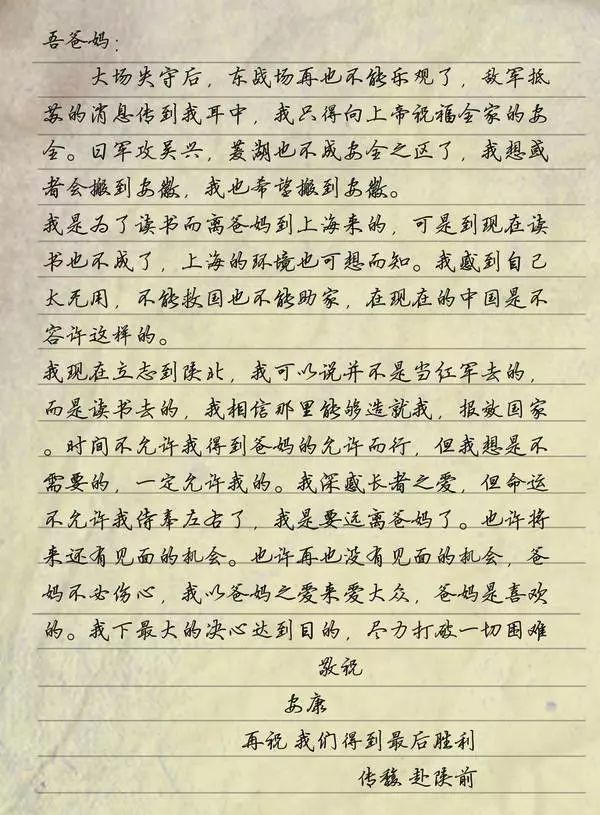 吾爸妈：
大场失守后，东战场再也不能乐观了，敌军抵
苏的消息传到我耳中，我只得向上帝祝福全家的安
全。日军攻吴兴，菱湖也不成安全之区了，我想或
者会搬到安徽，我也希望搬到安徽。
我是为了读书而离爸妈到上海来的，可是到现在读
书也不成了，上海的环境也可想而知。我感到自己
太无用，不能救国也不能助家，在现在的中国是不
容许这样的。
我现在立志到陕北，我可以说并不是当红军去的，
而是读书去的，我相信那里能够造就我，报效国家
。时间不允许我得到爸妈的允许而行，但我想是不
需要的，一定允许我的。我深感长者之爱，但命运
不允许我侍奉左右了，我是要远离爸妈了。也许将
来还有见面的机会。也许再也没有见面的机会，爸
妈不必伤心，我以爸妈之爱来爱大众，爸妈是喜欢
的。我下最大的决心达到目的，尽力打破一切困难
敬祝
安康
再祝 我们得到最后胜利
传馥 赴陕前